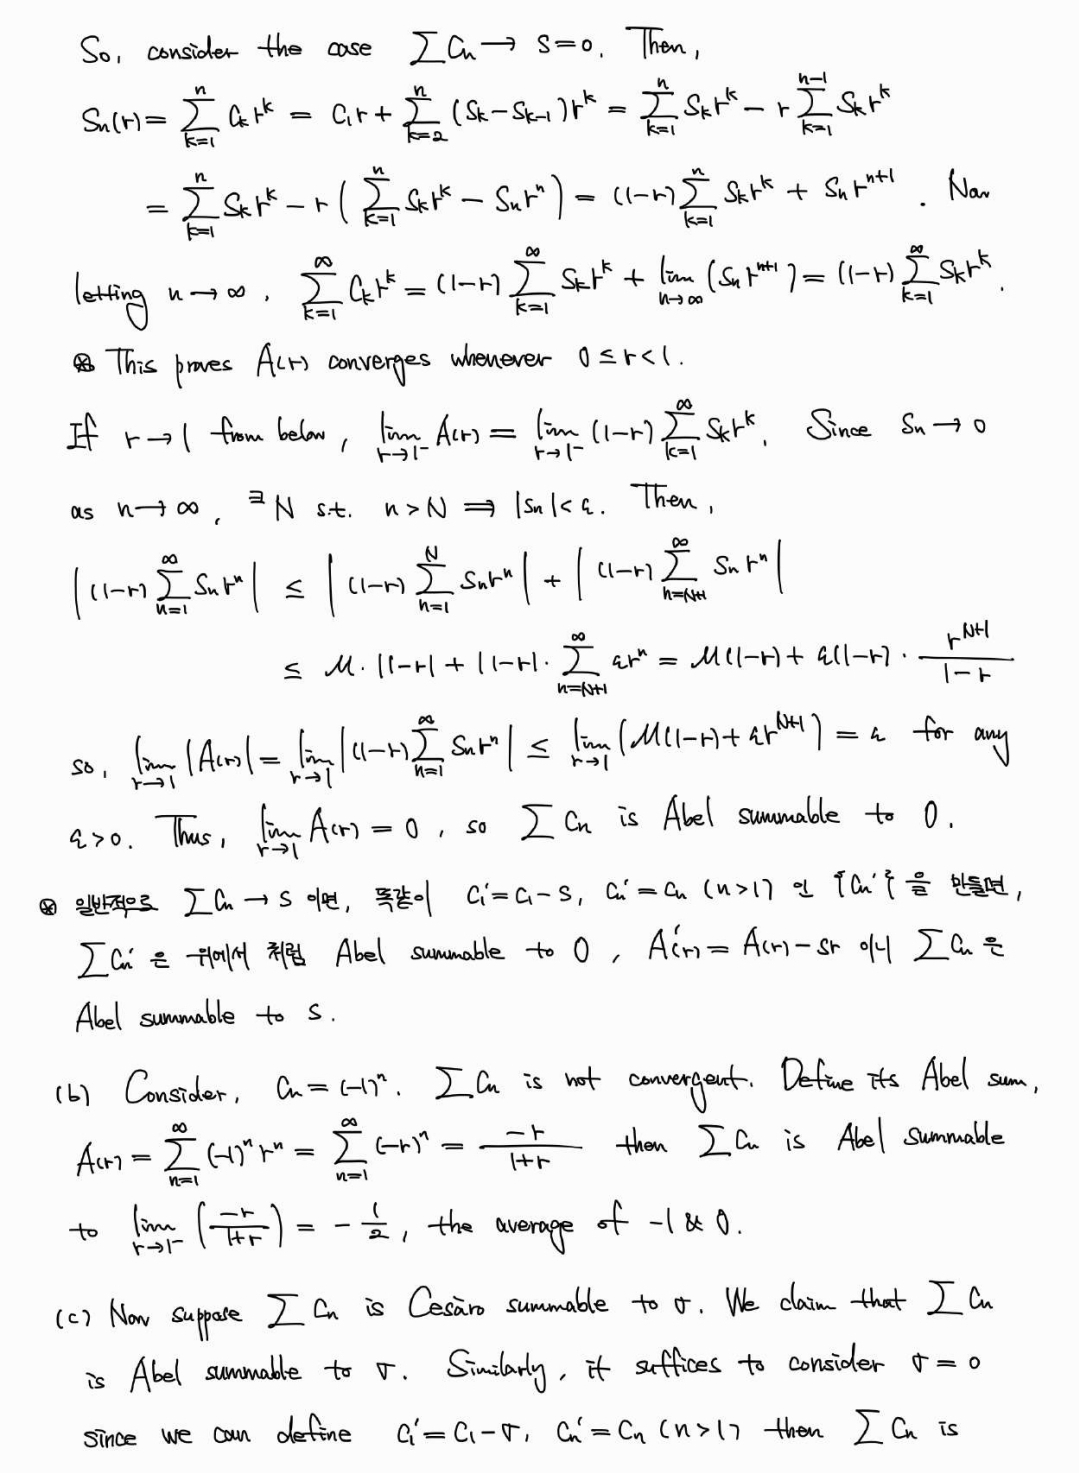 So, consider the case ∑Cn → S=0. Then,
Sn(r) = ∑_{k=1}^{n} Ck r^k = C1r + ∑_{k=2}^{n} (Sk−Sk-1)r^k = ∑_{k=1}^{n} Sk r^k − r∑_{k=1}^{n-1} Sk r^k
= ∑_{k=1}^{n} Sk r^k − r(∑_{k=1}^{n} Sk r^k − Sn r^n) = (1−r)∑_{k=1}^{n} Sk r^k + Sn r^{n+1}. Now
letting n→∞, ∑_{k=1}^{∞} Ck r^k = (1−r)∑_{k=1}^{∞} Sk r^k + lim_{n→∞} (Sn r^{n+1}) = (1−r)∑_{k=1}^{∞} Sk r^k.
⊛ This proves A(r) converges whenever 0≤r<1.
If r→1 from below, lim_{r→1-} A(r) = lim_{r→1-} (1−r)∑_{k=1}^{∞} Sk r^k. Since Sn→0
as n→∞, ∃N s.t. n>N ⇒ |Sn|<ε. Then,
|(1−r)∑_{n=1}^{∞} Sn r^n| ≤ |(1−r)∑_{n=1}^{N} Sn r^n| + |(1−r)∑_{n=N+1}^{∞} Sn r^n|
≤ M·|1−r| + |1−r|·∑_{n=N+1}^{∞} εr^n = M(1−r) + ε(1−r)·r^{N+1}/(1−r)
so, lim_{r→1} |A(r)| = lim_{r→1} |(1−r)∑_{n=1}^{∞} Sn r^n| ≤ lim_{r→1} (M(1−r)+εr^{N+1}) = ε for any
ε>0. Thus, lim_{r→1} A(r) = 0, so ∑Cn is Abel summable to 0.
⊛ 일반적으로 ∑Cn → S 이면, 똑같이 C1' = C1−S, Cn' = Cn (n>1) 인 {Cn'}을 만들면,
∑Cn'은 위에서 처럼 Abel summable to 0, A'(r) = A(r)−Sr 이니 ∑Cn은
Abel summable to S.
(b) Consider, Cn = (−1)^n. ∑Cn is not convergent. Define its Abel sum,
A(r) = ∑_{n=1}^{∞} (−1)^n r^n = ∑_{n=1}^{∞} (−r)^n = −r/(1+r) then ∑Cn is Abel summable
to lim_{r→1-} (−r/(1+r)) = −1/2, the average of −1 & 0.
(c) Now suppose ∑Cn is Cesàro summable to σ. We claim that ∑Cn
is Abel summable to σ. Similarly, it suffices to consider σ=0
since we can define C1' = C1−σ, Cn' = Cn (n>1) then ∑Cn is